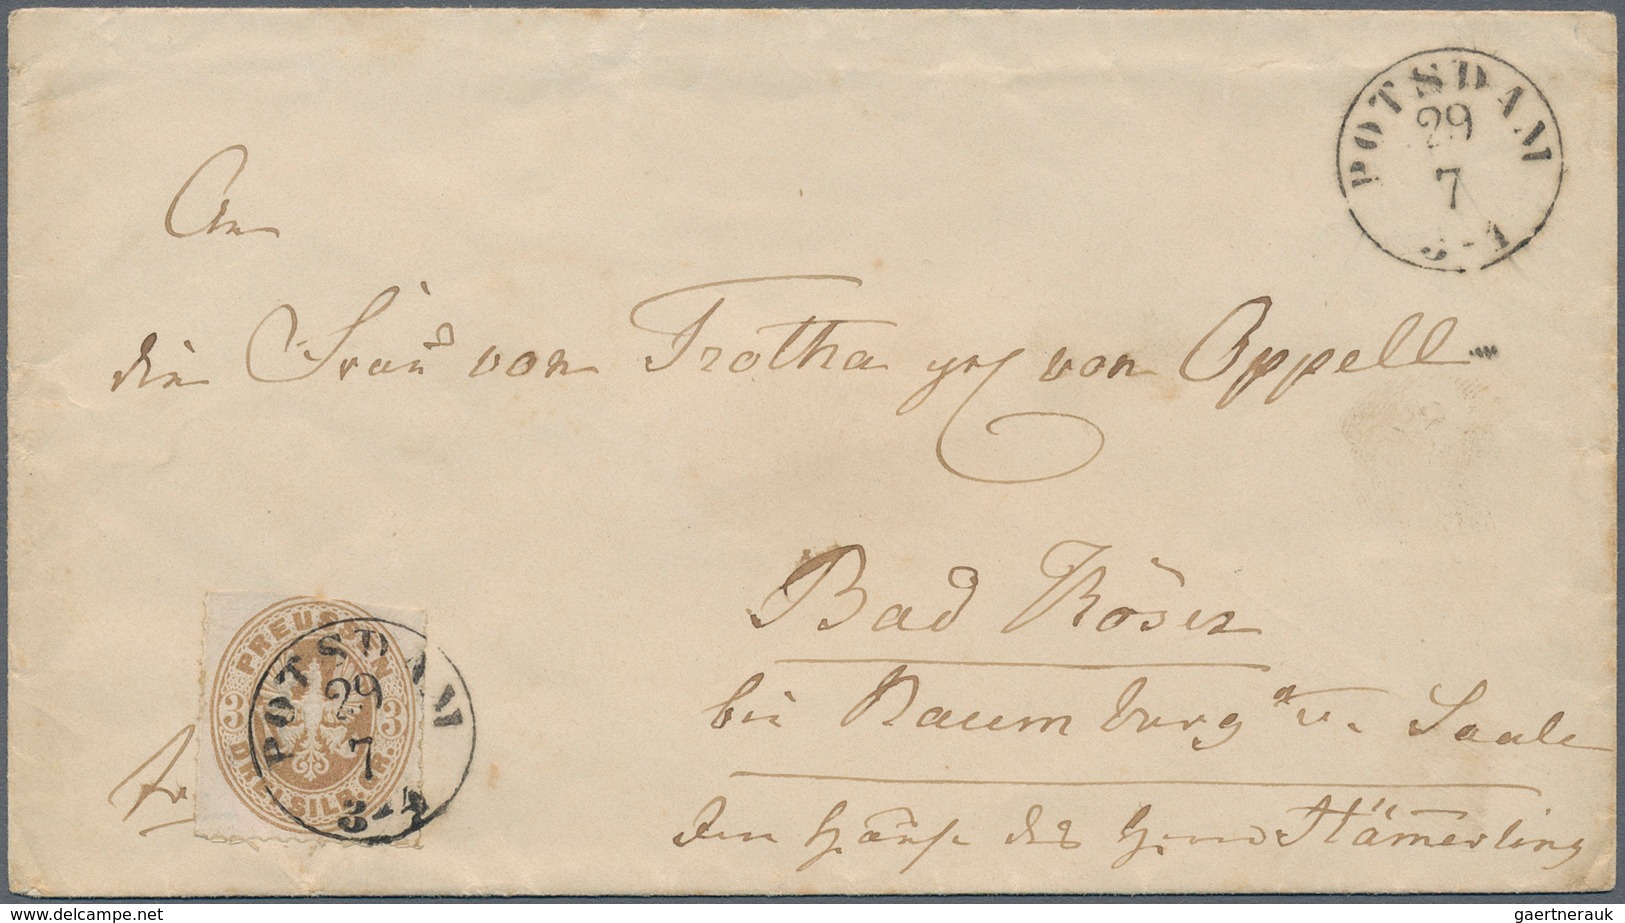 POTSDAM
29
7
3-4
An
die Frau von Trotha geb von Oppell
Bad Kösen
bei Naumburg a. Saale
Im Hause des Herrn Hämerling
fr
PREUSSEN
3 3
DREI SILB. GR.
POTSDAM
29
7
3-4
www.delcampe.net
gaertnerauk